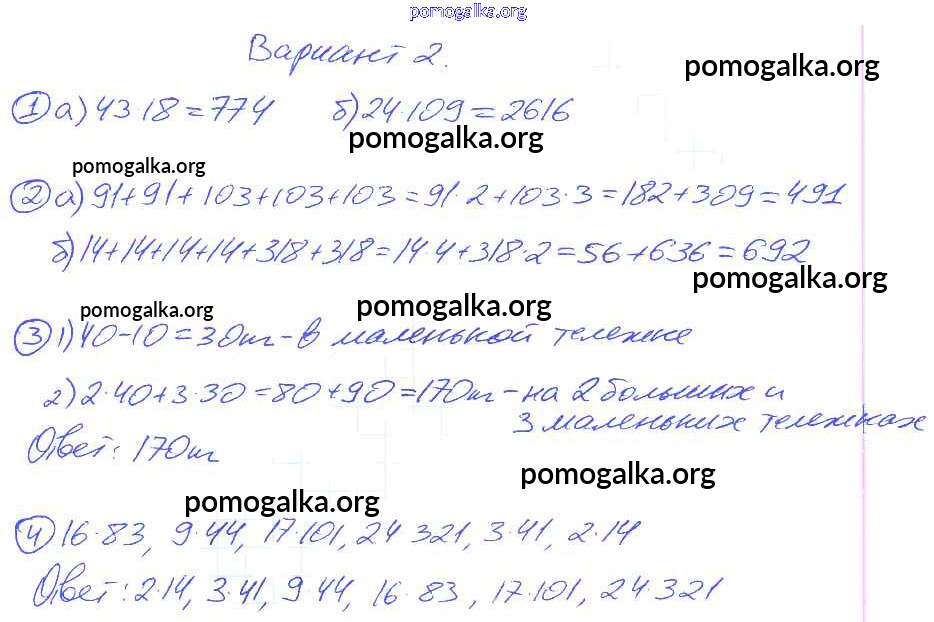 pomogalka.org
Вариант 2.
pomogalka.org
① а) 43·18=774 б) 24·109=2616
pomogalka.org
pomogalka.org
② а) 91+91+103+103+103=91·2+103·3=182+309=491
б) 14+14+14+14+318+318=14·4+318·2=56+636=692
pomogalka.org
pomogalka.org
pomogalka.org
③ 1) 40-10=30кг-в маленькой тележке
2) 2·40+3·30=80+90=170кг-на 2 больших и
3 маленьких тележках
Ответ: 170кг
pomogalka.org
pomogalka.org
④ 16·83, 9·44, 17·101, 24·321, 3·41, 2·14
Ответ: 2·14, 3·41, 9·44, 16·83, 17·101, 24·321